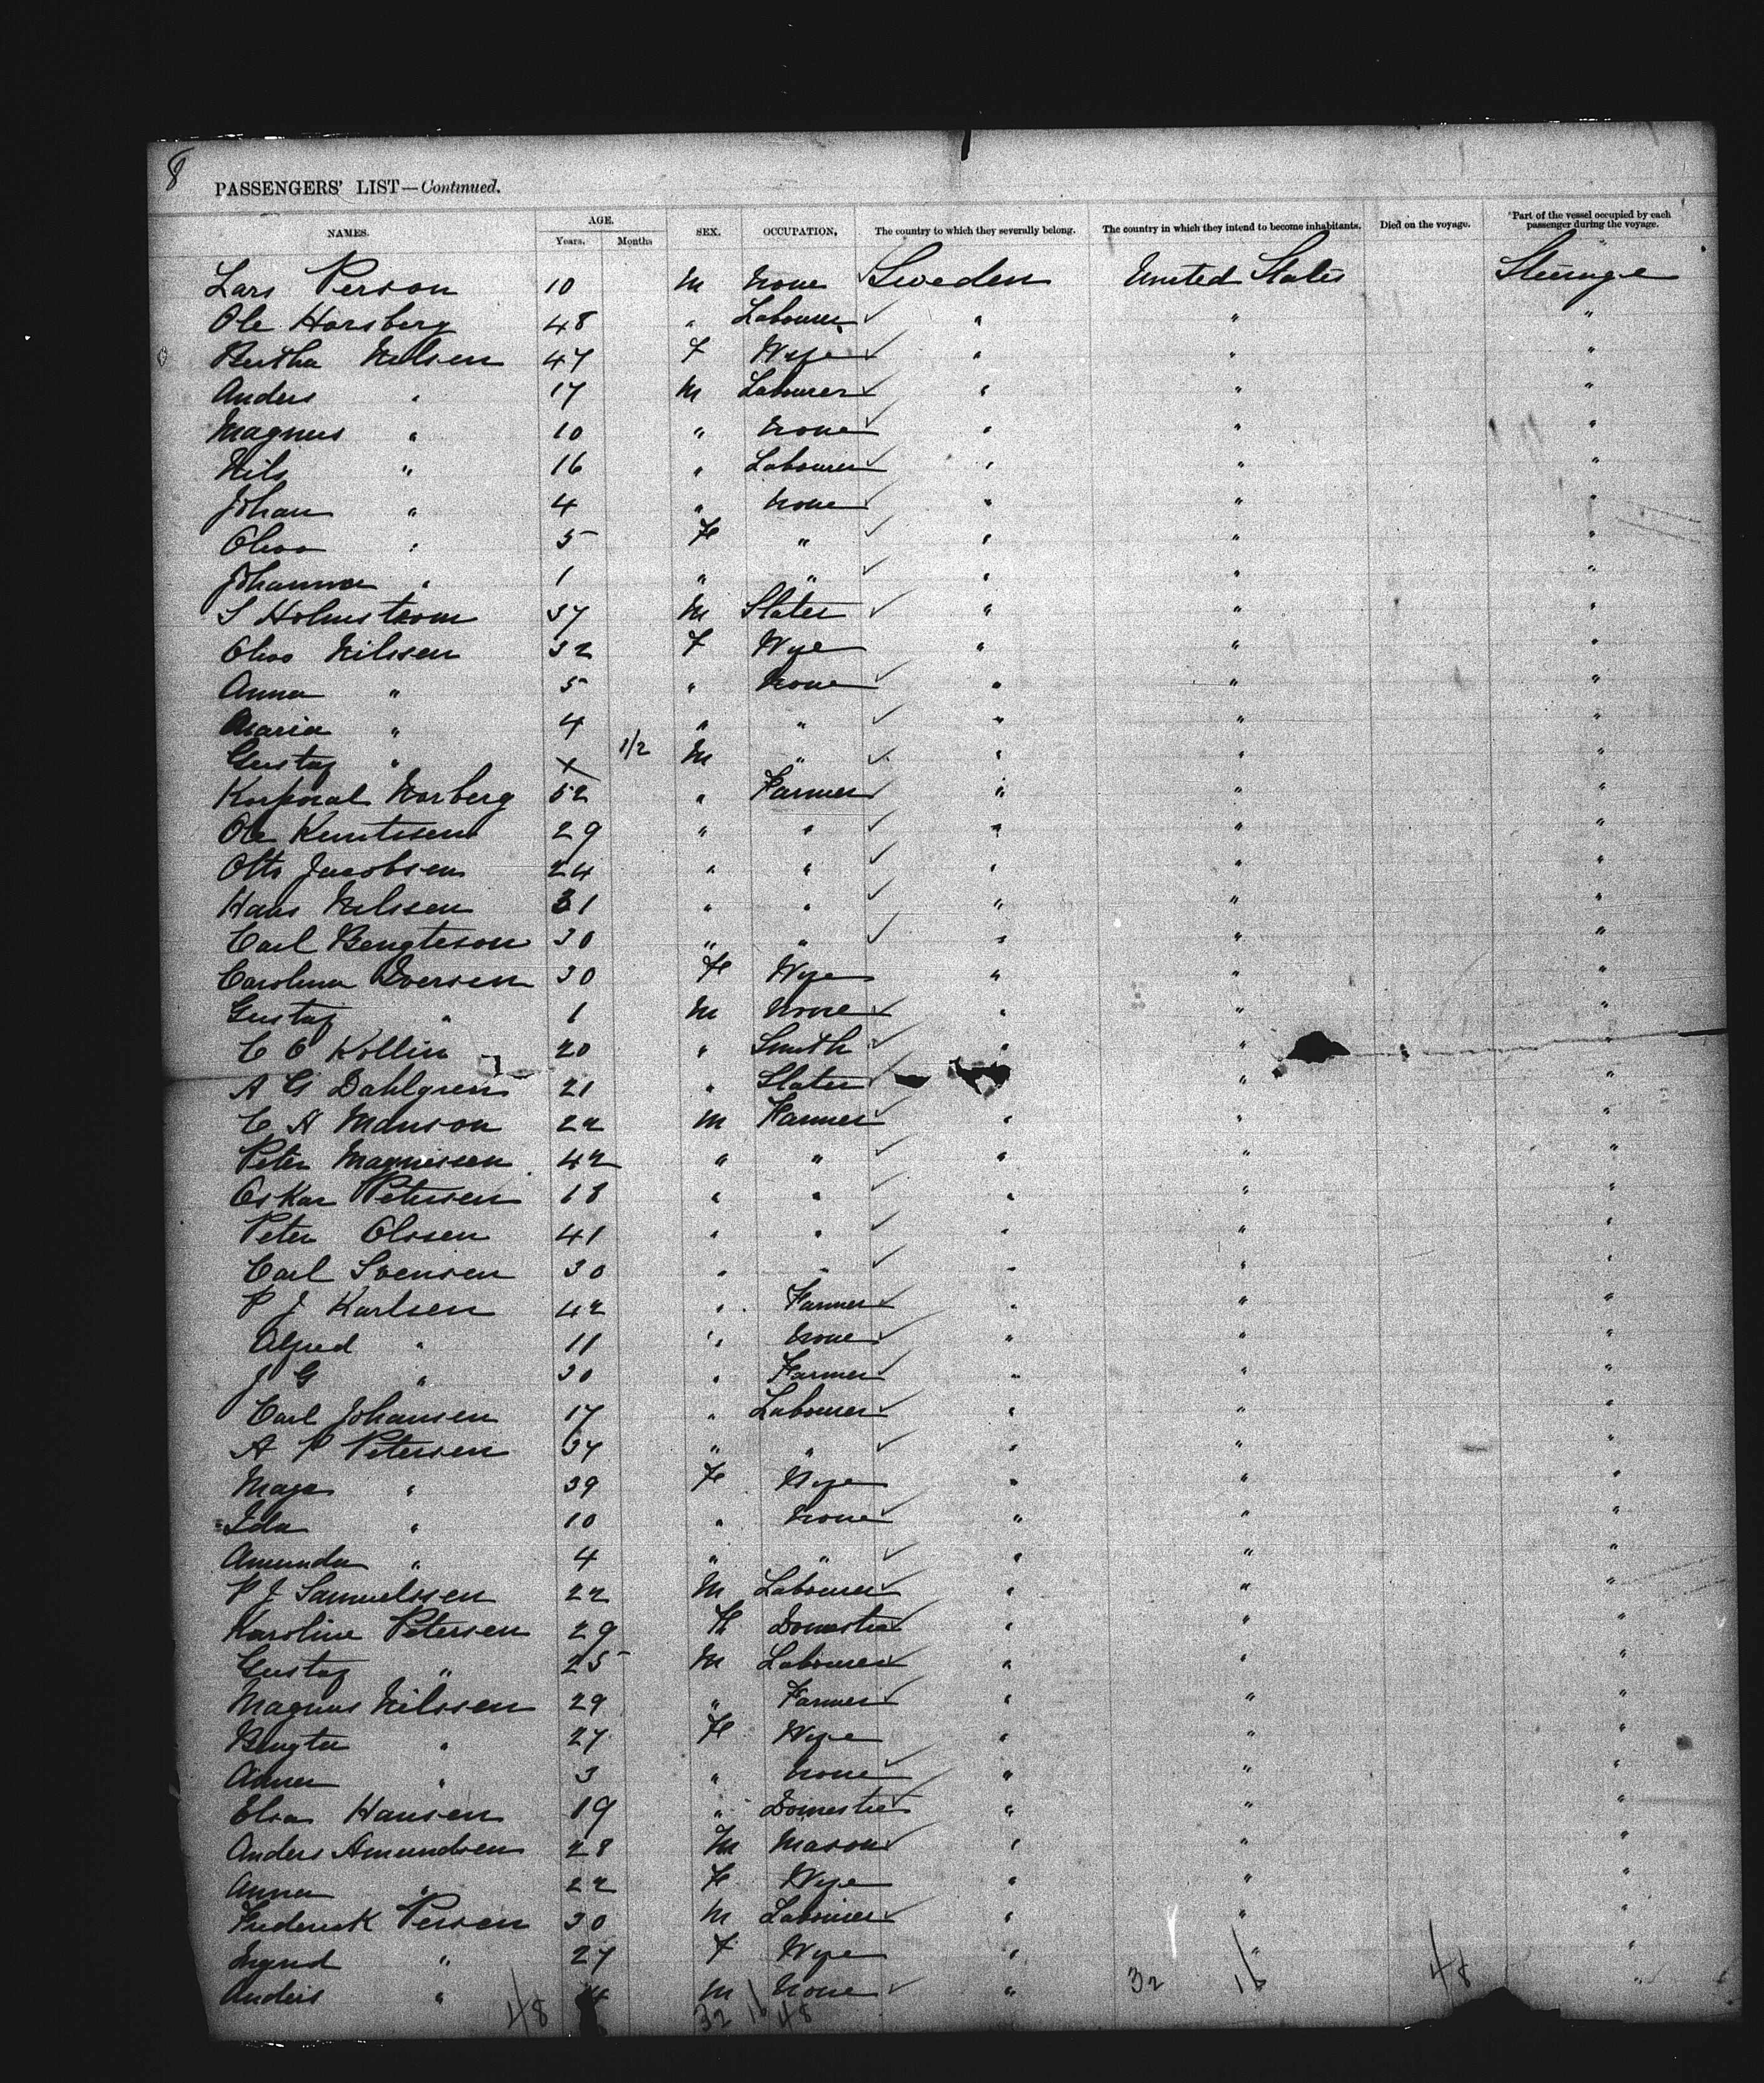 8
PASSENGERS' LIST—Continued.
NAMES. AGE. Years. Months SEX. OCCUPATION, The country to which they severally belong. The country in which they intend to become inhabitants. Died on the voyage. Part of the vessel occupied by each passenger during the voyage.
Lars Person 10 M None Sweden United States Steerage
Ole Horsberg 48 " Labourer " " "
Bertha Nilsen 47 F Wife " " "
Anders " 17 M Labourer " " "
Magnus " 10 " None " " "
Nils " 16 " Labourer " " "
Johan " 4 " None " " "
Olivo " 5 F " " " "
Johanna " 1 " " " " "
S Holmstrom 37 M Slater " " "
Olivo Nilssen 32 F Wife " " "
Anna " 5 " None " " "
Maria " 4 " " " " "
Gustaf " x 1/2 M " " " "
Korporal Norberg 52 " Farmer " " "
Ole Knutssen 29 " " " " "
Otto Jacobsen 24 " " " " "
Hans Nelssen 31 " " " " "
Carl Bengteson 30 " " " " "
Carolina Iversen 30 F Wife " " "
Gustaf " 1 M None " " "
C O Kollin 20 " Smith " " "
A G Dahlgren 21 " Slater " "
C A Manson 22 M Farmer " " "
Peter Magnissen 42 " " " " "
Oskar Petersen 18 " " " " "
Peter Olssen 41 " " " " "
Carl Svensen 30 " " " " "
P J Karlsen 42 " Farmer " " "
Alfred " 11 " None " " "
J G " 30 " Farmer " " "
Carl Johansen 17 " Labourer " " "
A P Petersen 37 " " " " "
Maja " 39 F Wife " " "
Ida " 10 " None " " "
Amanda " 4 " " " " "
P J Samuelssen 22 M Labourer " " "
Karoline Petersen 29 F Domestic " " "
Gustaf " 25 M Labourer " " "
Magnus Nilssen 29 " Farmer " " "
Bengta " 27 F Wife " " "
Anna " 3 " None " " "
Elsa Hansen 19 " Domestic " " "
Anders Amundsen 28 M Mason " " "
Anna " 22 F Wife " " "
Frederick Persen 30 M Labourer " " "
Ingrid " 27 F Wife " " "
Anders " 4 M None " "
32 16 48
48 32 16 48